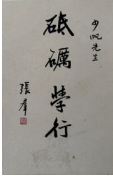 少帆先生
砥礪學行
張羣